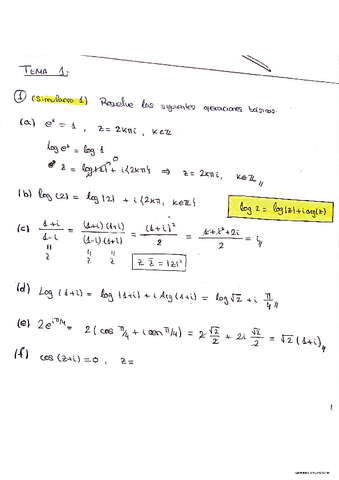 TEMA 1:
① (Simulacro 1) Resuelve las siguientes operaciones básicas.
(a) e^z = 1 , z = 2kπi , k∈ℤ
log e^z = log 1
z = log|1| + i{2kπ} ⇒ z = 2kπi, k∈ℤ //
(b) log(2) = log|2| + i{2kπ, k∈ℤ}
log z = log|z| + i arg(z)
(c) (1+i)/(1-i) = (1+i)(1+i)/(1-i)(1+i) = (1+i)²/2 = (1+i²+2i)/2 = i //
z z̄ = |z|²
(d) Log(1+i) = log|1+i| + i Arg(1+i) = log√2 + i π/4 //
(e) 2e^(iπ/4) = 2(cos π/4 + i sen π/4) = 2 √2/2 + 2i √2/2 = √2(1+i) //
(f) cos(z+i) = 0 , z =
1